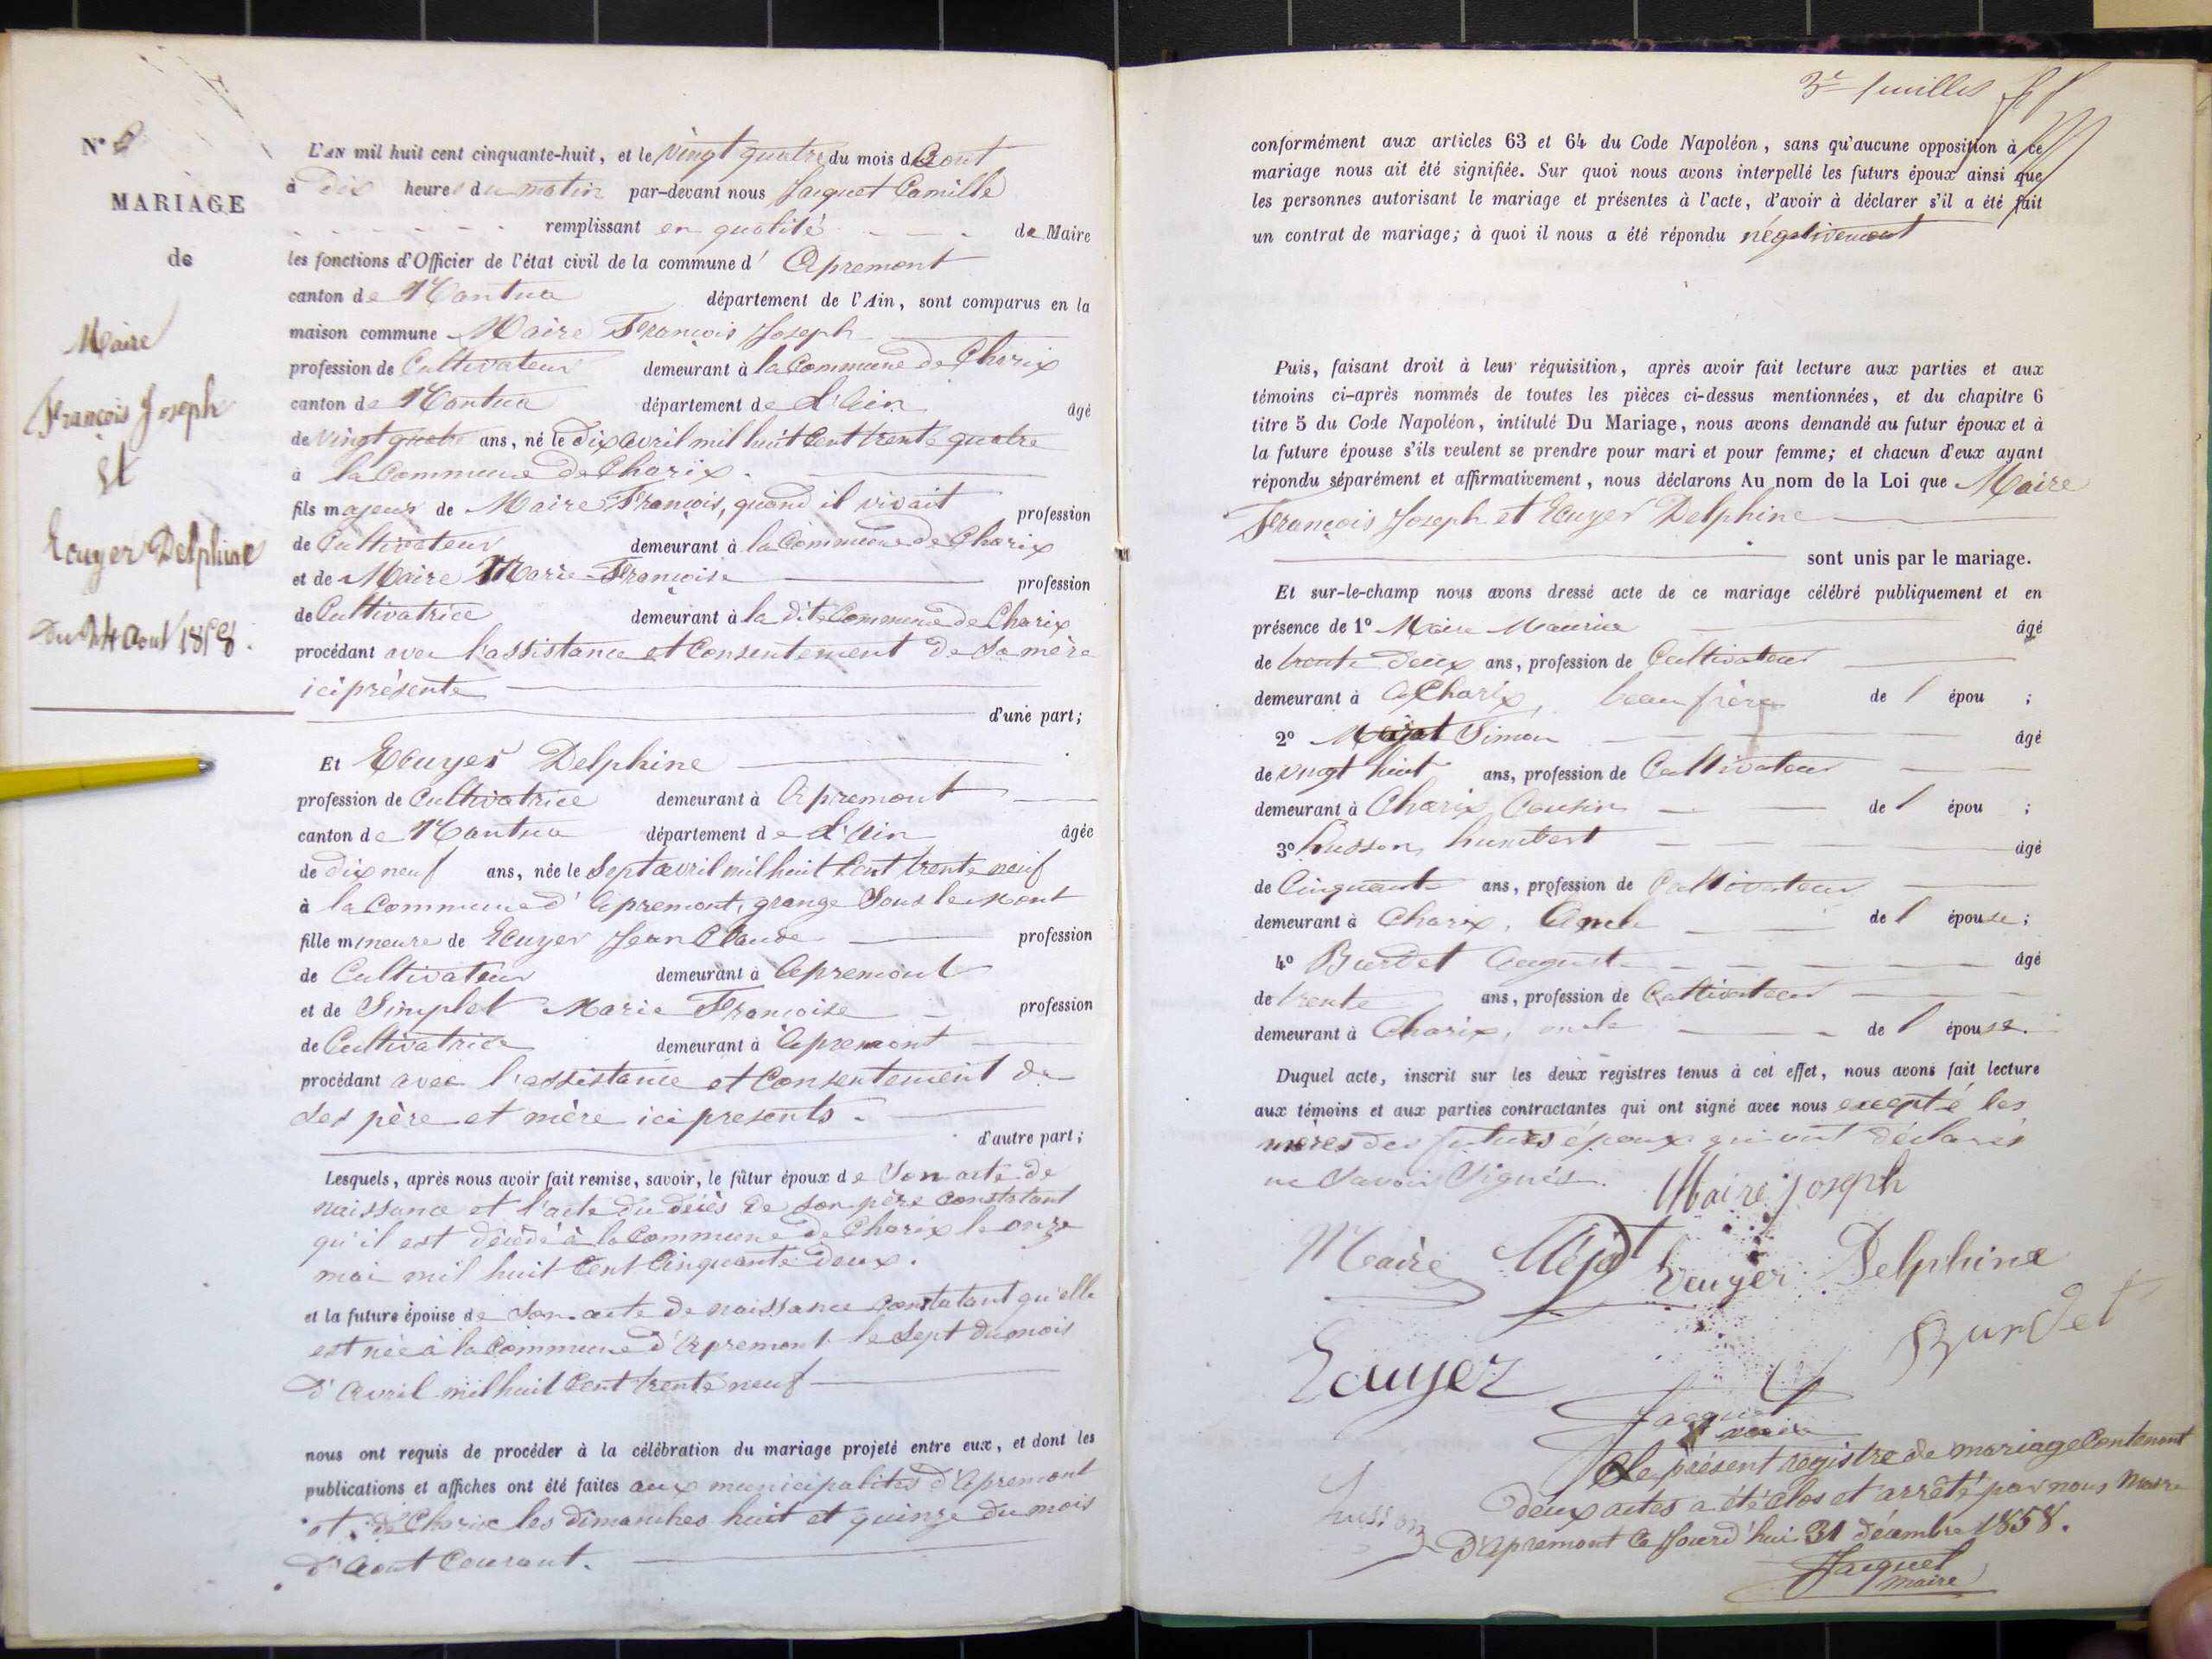 N° 2
MARIAGE
de
Maire
François Joseph
Et
Ecuyer Delphine
Du 24 Aout 1858.
L'AN mil huit cent cinquante-huit, et le vingt quatre du mois d'Aout
à Dix heures du matin par-devant nous Jacquet Camille
remplissant en qualité de Maire
les fonctions d'Officier de l'état civil de la commune d' Apremont
canton de Nantua département de l'Ain, sont comparus en la
maison commune Maire François Joseph
profession de Cultivateur demeurant à la Commune de Charix
canton de Nantua département de L'Ain âgé
de Vingt quatre ans, né le Dix avril mil huit Cent trente quatre
à la Commune de Charix.
fils majeur de Maire François, quand il vivait profession
de Cultivateur demeurant à la Commune de Charix
et de Maire Marie Françoise profession
de Cultivatrice demeurant à la Dite Commune de Charix
procédant avec l'assistance et Consentement de Sa mère
ici présente
d'une part;
Et Ecuyer Delphine
profession de Cultivatrice demeurant à Apremont
canton de Nantua département de L'Ain âgée
de Dix neuf ans, née le Sept avril mil huit Cent trente neuf
à la Commune d'Apremont, grange Sous le mont
fille mineure de Ecuyer Jean Claude profession
de Cultivateur demeurant à Apremont
et de Simplet Marie Françoise profession
de Cultivatrice demeurant à Apremont
procédant avec l'assistance et Consentement de
Ses père et mère ici presents.
d'autre part;
Lesquels, après nous avoir fait remise, savoir, le futur époux de Son acte de
naissance et l'acte du décès de son père constatant
qu'il est décédé à la Commune de Charix le onze
mai mil huit Cent Cinquante Deux.
et la future épouse de Son acte de naissance Constatant qu'elle
est née à la Commune d'Apremont le Sept du mois
d'Avril mil huit Cent trente neuf
nous ont requis de procéder à la célébration du mariage projeté entre eux, et dont les
publications et affiches ont été faites aux municipalités d'Apremont
et de Charix les Dimanches huit et quinze du mois
d'Aout Courant.
3e feuillet
conformément aux articles 63 et 64 du Code Napoléon, sans qu'aucune opposition à ce
mariage nous ait été signifiée. Sur quoi nous avons interpellé les futurs époux ainsi que
les personnes autorisant le mariage et présentes à l'acte, d'avoir à déclarer s'il a été fait
un contrat de mariage; à quoi il nous a été répondu négativement
Puis, faisant droit à leur réquisition, après avoir fait lecture aux parties et aux
témoins ci-après nommés de toutes les pièces ci-dessus mentionnées, et du chapitre 6
titre 5 du Code Napoléon, intitulé Du Mariage, nous avons demandé au futur époux et à
la future épouse s'ils veulent se prendre pour mari et pour femme; et chacun d'eux ayant
répondu séparément et affirmativement, nous déclarons Au nom de la Loi que Maire
François Joseph et Ecuyer Delphine
sont unis par le mariage.
Et sur-le-champ nous avons dressé acte de ce mariage célébré publiquement et en
présence de 1° Maire Maurice âgé
de trente Deux ans, profession de Cultivateur
demeurant à Charix, beau frère de l' épou ;
2° Simon âgé
de vingt huit ans, profession de Cultivateur
demeurant à Charix Cousin de l' épou ;
3° Husson humbert âgé
de Cinquante ans, profession de Cultivateur
demeurant à Charix, Oncle de l' épouse;
4° Burdet Auguste âgé
de trente ans, profession de Cultivateur
demeurant à Charix, oncle de l' épouse.
Duquel acte, inscrit sur les deux registres tenus à cet effet, nous avons fait lecture
aux témoins et aux parties contractantes qui ont signé avec nous excepté les
mères des futurs époux qui ont déclarés
ne Savoir Signés.
Maire Joseph
Maire Méjat Ecuyer Delphine
Ecuyer Burdet
Jacquet
maire
Husson
Le présent registre de mariage Contenant
deux actes a été clos et arrêté par nous Maire
D'Apremont Ce Jourd'hui 31 décembre 1858.
Jacquet
maire